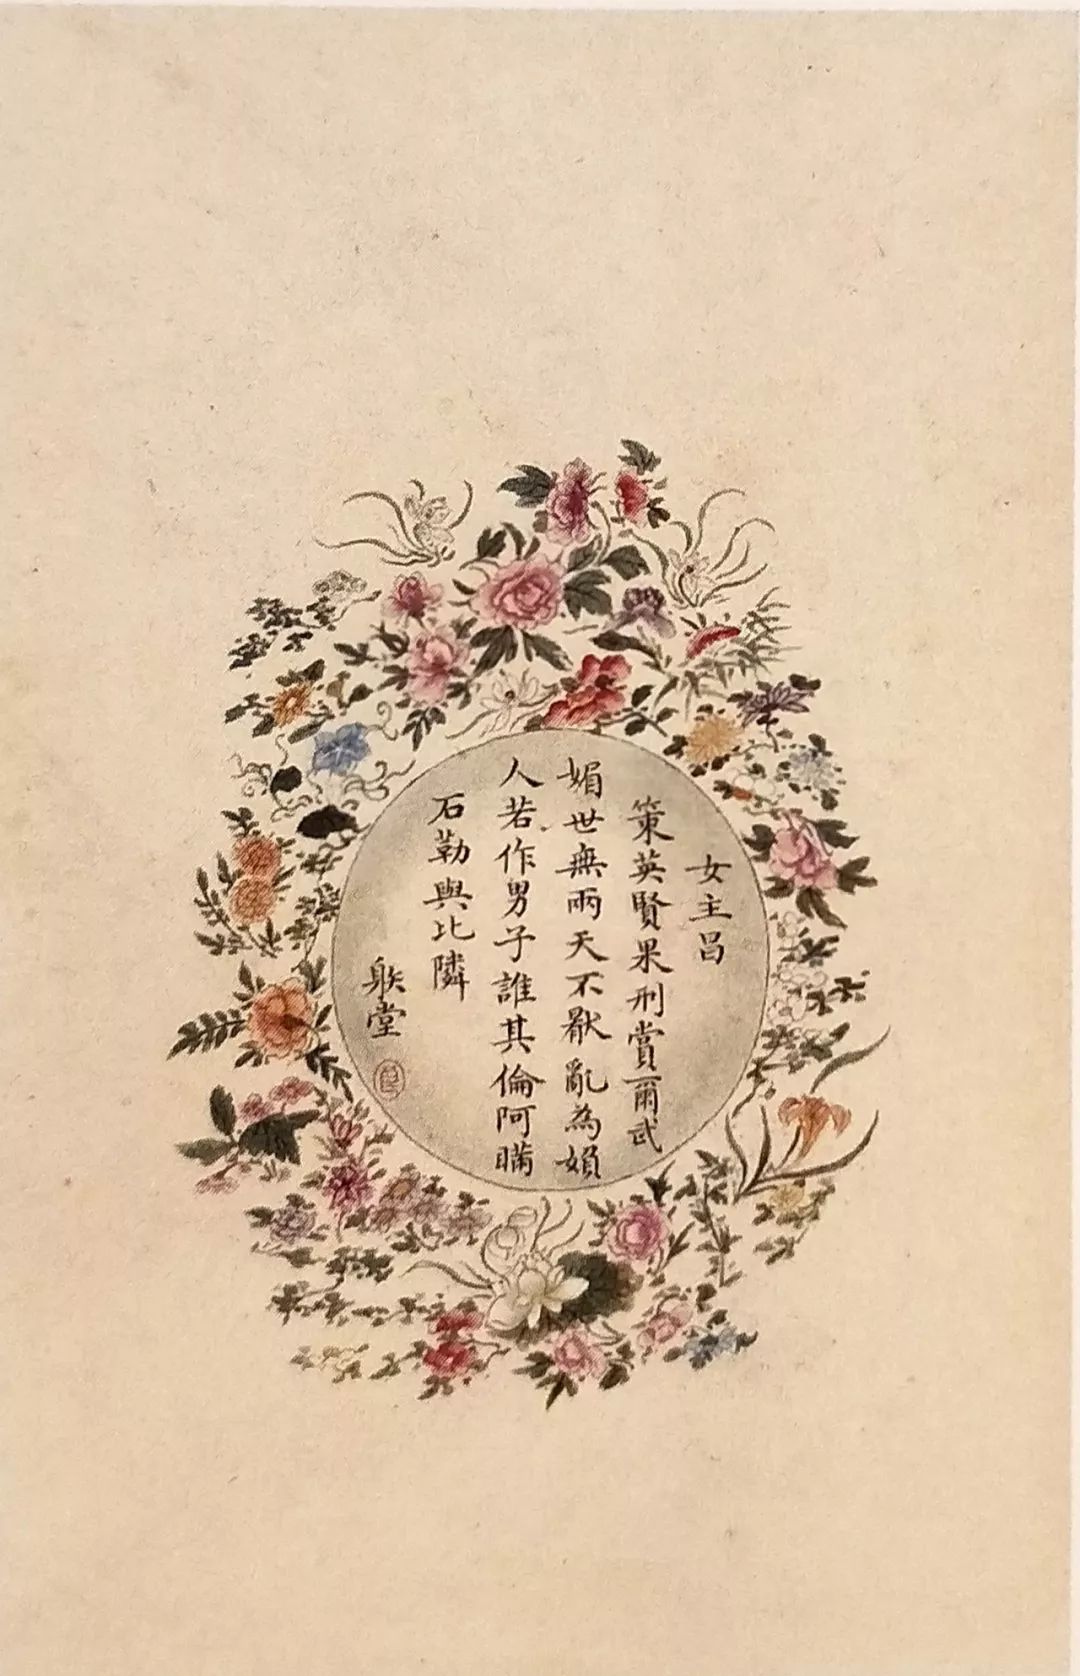 女主昌
策英賢果刑賞爾武
媚世無兩天不厭亂為媍
人若作男子誰其倫阿瞞
石勒與比隣
䠶堂